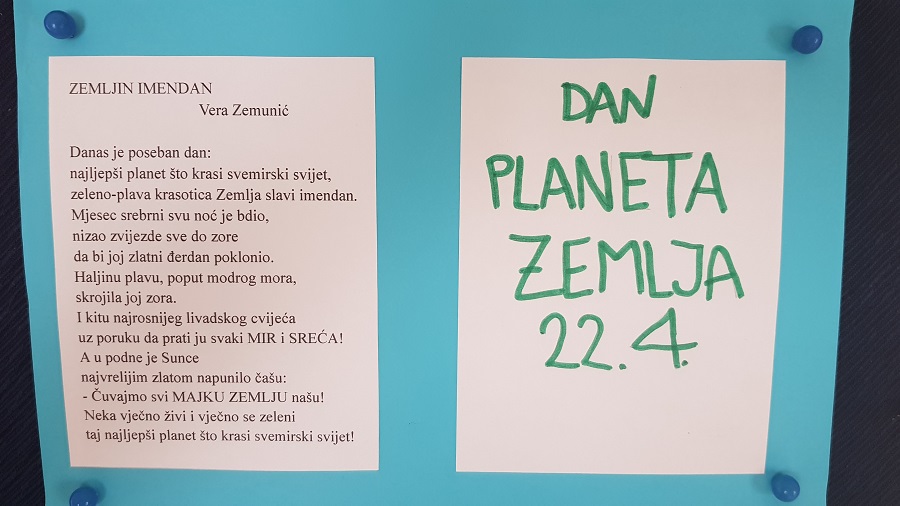 ZEMLJIN IMENDAN
Vera Zemunić
Danas je poseban dan:
najljepši planet što krasi svemirski svijet,
zeleno-plava krasotica Zemlja slavi imendan.
Mjesec srebrni svu noć je bdio,
nizao zvijezde sve do zore
da bi joj zlatni đerdan poklonio.
Haljinu plavu, poput modrog mora,
skrojila joj zora.
I kitu najrosnijeg livadskog cvijeća
uz poruku da prati ju svaki MIR i SREĆA!
A u podne je Sunce
najvrelijim zlatom napunilo čašu:
- Čuvajmo svi MAJKU ZEMLJU našu!
Neka vječno živi i vječno se zeleni
taj najljepši planet što krasi svemirski svijet!
DAN
PLANETA
ZEMLJA
22.4.